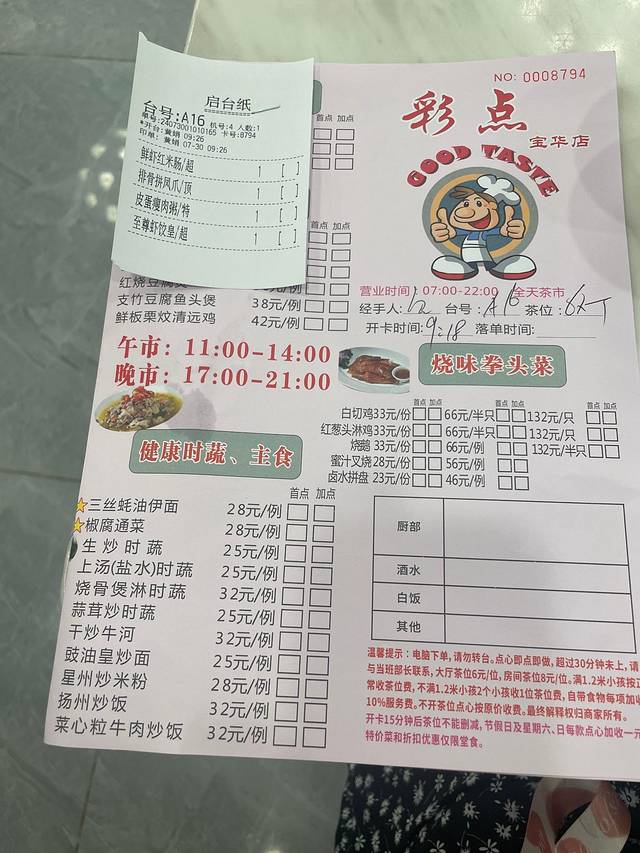 启台纸
台号:A16 机号:4 人数:1
单号:24073001010165 卡号:8794
*开台:黄娟 09:26
印单:黄娟 07-30 09:26
鲜虾红米肠/超 1 [ ]
排骨拼凤爪/顶 1 [ ]
皮蛋瘦肉粥/特 1 [ ]
至尊虾饺皇/超 1 [ ]
首点 加点
首点 加点
支竹豆腐鱼头煲 38元/例
鲜板栗炆清远鸡 42元/例
午市：11:00-14:00
晚市：17:00-21:00
健康时蔬、主食
首点 加点
三丝蚝油伊面 28元/例
椒腐通菜 28元/例
生炒时蔬 25元/例
上汤(盐水)时蔬 25元/例
烧骨煲淋时蔬 32元/例
蒜茸炒时蔬 25元/例
干炒牛河 32元/例
豉油皇炒面 25元/例
星州炒米粉 28元/例
扬州炒饭 32元/例
菜心粒牛肉炒饭 32元/例
NO: 0008794
彩点
宝华店
GOOD TASTE
营业时间：07:00-22:00 全天茶市
经手人: 台号: A16 茶位:
开卡时间: 9:18 落单时间:
烧味拳头菜
首点 加点 首点 加点 首点 加点
白切鸡33元/份 66元/半只 132元/只
红葱头淋鸡33元/份 66元/半只 132元/只
烧鹅 33元/份 66元/例 132元/半只
蜜汁叉烧 28元/份 56元/例
卤水拼盘 23元/份 46元/例
厨部
酒水
白饭
其他
温馨提示：电脑下单，请勿转台。点心即点即做，超过30分钟未上，请
与当班部长联系，大厅茶位6元/位，房间茶位8元/位。满1.2米小孩按正
常收茶位费，不满1.2米小孩2个小孩收1位茶位费，自带食物每项加收
10%服务费。不开茶位点心按原价收费。最终解释权归商家所有。
开卡15分钟后茶位不能删减，节假日及星期六、日每款点心加收一元
特价菜和折扣优惠仅限堂食。